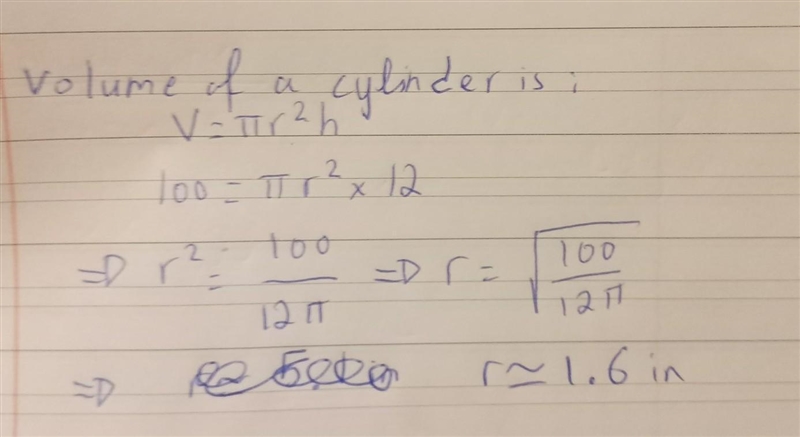 Volume of a cylinder is:
V = πr²h
100 = πr² × 12
⇒ r² = 100/12π ⇒ r = √(100/12π)
⇒ r ≃ 1.6 in